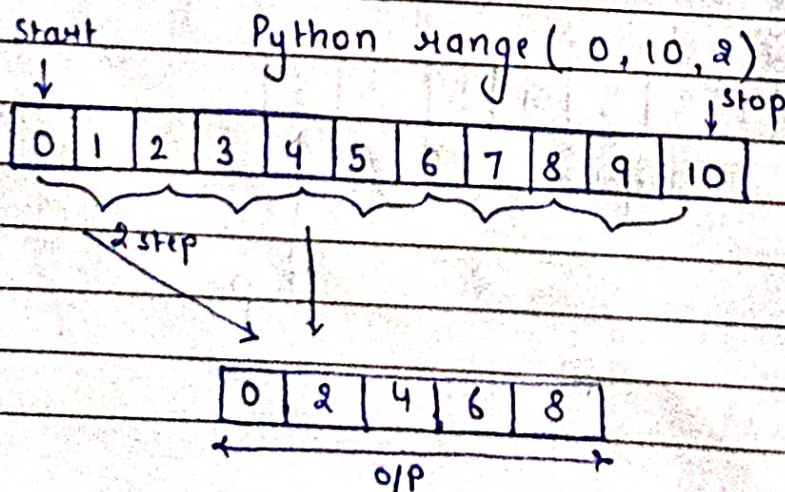 start Python range( 0, 10, 2)
stop
0 1 2 3 4 5 6 7 8 9 10
2 step
0 2 4 6 8
O/P